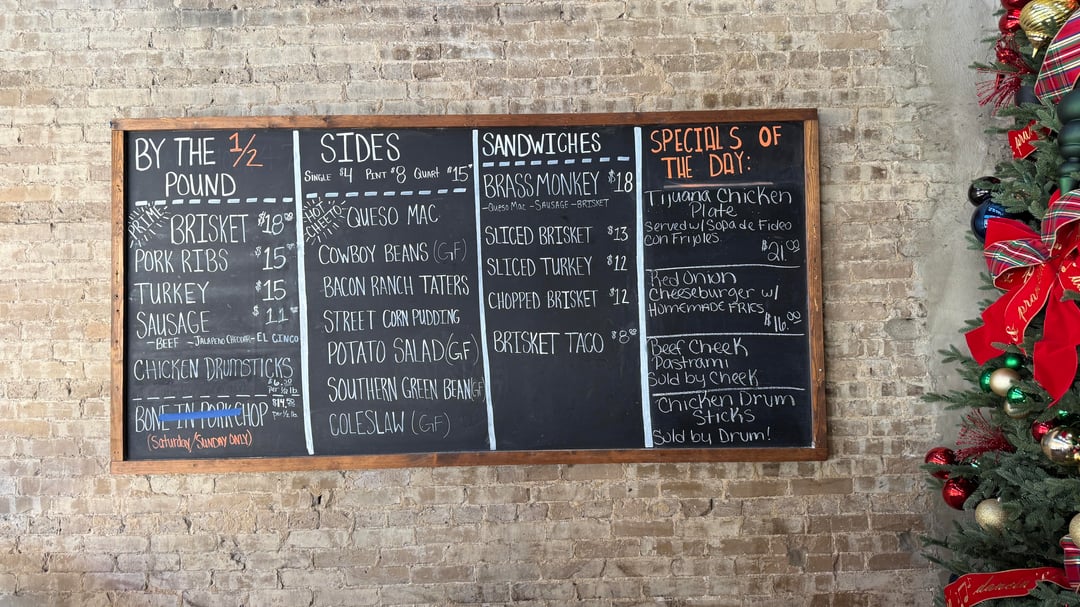 BY THE 1/2
POUND
PRIME
BRISKET $18.00
PORK RIBS $15
TURKEY $15
SAUSAGE $11
-BEEF -JALAPEÑO CHEDDAR -EL CINCO
CHICKEN DRUMSTICKS
$6.50
per 1/2 lb.
BONE IN PORK CHOP $14.50
per 1/2 lb.
(Saturday/SUNDAY ONLY)
SIDES
SINGLE $4 PINT $8 QUART $15
HOT CHEETO
QUESO MAC
COWBOY BEANS (GF)
BACON RANCH TATERS
STREET CORN PUDDING
POTATO SALAD (GF)
SOUTHERN GREEN BEAN (GF)
COLESLAW (GF)
SANDWICHES
BRASS MONKEY $18
-QUESO MAC -SAUSAGE -BRISKET
SLICED BRISKET $13
SLICED TURKEY $12
CHOPPED BRISKET $12
BRISKET TACO $8.00
SPECIALS OF
THE DAY:
Tijuana Chicken
Plate
served w/ Sopa de Fideo
con Frijoles.
$21.00
Red Onion
Cheeseburger w/
HOMEMADE FRIES
$16.00
Beef Cheek
Pastrami
Sold by Cheek
Chicken Drum
Sticks
Sold by Drum!